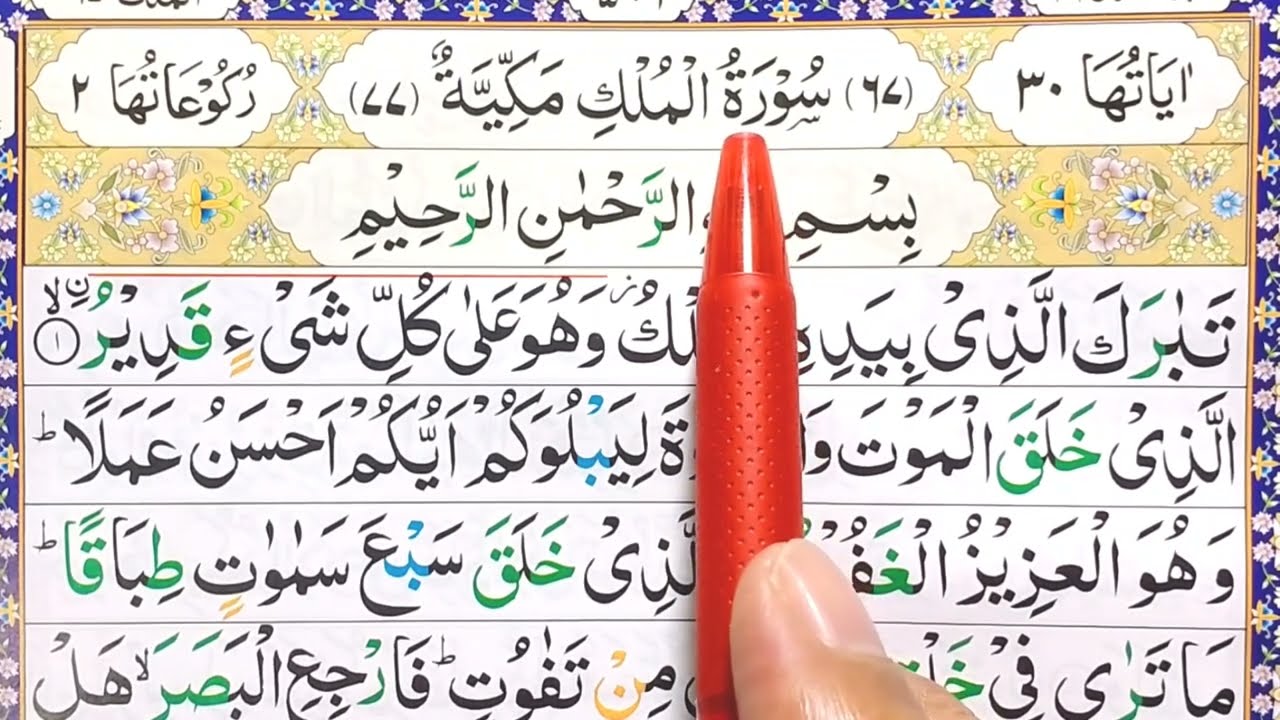 اٰيَاتُهَا ٣٠ (٦٧) سُوْرَةُ الْمُلْكِ مَكِّيَّةٌ (٧٧) رُكُوْعَاتُهَا ٢
بِسْمِ الرَّحْمٰنِ الرَّحِيْمِ
تَبٰرَكَ الَّذِىْ بِيَدِهِ وَهُوَ عَلٰى كُلِّ شَىْءٍ قَدِيْرُ ۙ﴿١﴾
الَّذِىْ خَلَقَ الْمَوْتَ لِيَبْلُوَكُمْ اَيُّكُمْ اَحْسَنُ عَمَلًا ؕ
وَهُوَ الْعَزِيْزُ خَلَقَ سَبْعَ سَمٰوٰتٍ طِبَاقًا ؕ
مَا تَرٰى فِىْ مِنْ تَفٰوُتٍ ؕ فَارْجِعِ الْبَصَرَ ۙ هَلْ